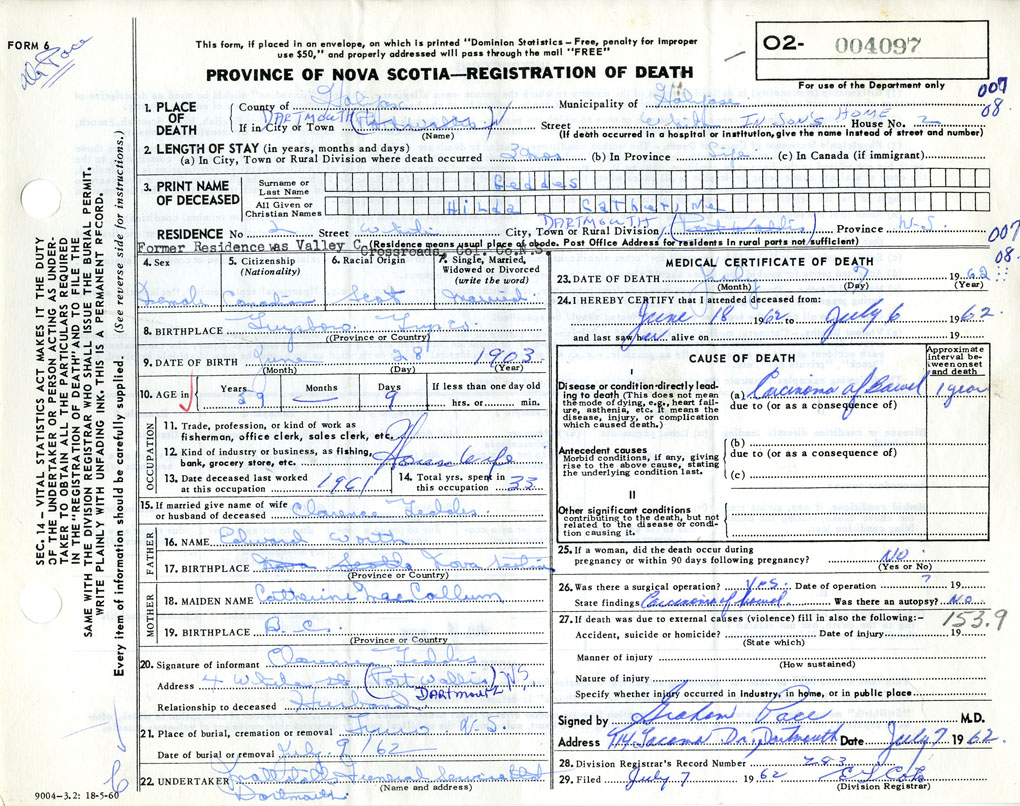 FORM 6
Dr Pace
This form, if placed in an envelope, on which is printed "Dominion Statistics – Free, penalty for improper
use $50," and properly addressed will pass through the mail "FREE"
PROVINCE OF NOVA SCOTIA—REGISTRATION OF DEATH
02- 004097
For use of the Department only
007
08
1. PLACE OF DEATH
County of Halifax Municipality of Halifax
DARTMOUTH IN SON'S HOME
If in City or Town (Port Wallis) Street House No. 2
(Name) (If death occurred in a hospital or institution, give the name instead of street and number)
2. LENGTH OF STAY (in years, months and days)
(a) In City, Town or Rural Division where death occurred 3 mos (b) In Province Life (c) In Canada (if immigrant)
3. PRINT NAME OF DECEASED
Surname or Last Name Geddes
All Given or Christian Names Hilda Catherine
DARTMOUTH
RESIDENCE No 2 Street City, Town or Rural Division (Port Wallis) Province N.S.
007
08
Former Residence was Valley C (Residence means usual place of abode. Post Office Address for residents in rural parts not sufficient)
Crossroads, Col. Co.N.S.
4. Sex 5. Citizenship (Nationality) 6. Racial Origin 7. Single, Married, Widowed or Divorced (write the word)
Female Canadian Scot Married
8. BIRTHPLACE Guysboro Guys co.
(Province or Country)
9. DATE OF BIRTH June 28 1903
(Month) (Day) (Year)
10. AGE in Years 59 Months — Days 9 If less than one day old
hrs. or min.
OCCUPATION
11. Trade, profession, or kind of work as
fisherman, office clerk, sales clerk, etc.
12. Kind of industry or business, as fishing,
bank, grocery store, etc. House Wife
13. Date deceased last worked at this occupation 1961
14. Total yrs. spent in this occupation 33
15. If married give name of wife
or husband of deceased Clarence Geddes
FATHER
16. NAME Edward Worth
17. BIRTHPLACE Nova Scotia Nova Scotia
(Province or Country)
MOTHER
18. MAIDEN NAME Catherine MacCallum
19. BIRTHPLACE B.C.
(Province or Country)
20. Signature of informant Clarence Geddes
Address (Port Wallis) N.S.
DARTMOUTH
Relationship to deceased Husband
21. Place of burial, cremation or removal Truro N.S.
Date of burial or removal July 9/62
22. UNDERTAKER
(Name and address)
Dartmouth
9004-3.2: 18-5-60
MEDICAL CERTIFICATE OF DEATH
23. DATE OF DEATH July 7 1962
(Month) (Day) (Year)
24. I HEREBY CERTIFY that I attended deceased from:
June 18 1962 to July 6 1962
and last saw her alive on 19
CAUSE OF DEATH
Approximate interval between onset and death
I
Disease or condition directly leading to death (This does not mean the mode of dying, e.g., heart failure, asthenia, etc. It means the disease, injury, or complication which caused death.)
(a) Carcinoma of Bowel 1 year
due to (or as a consequence of)
Antecedent causes
Morbid conditions, if any, giving rise to the above cause, stating the underlying condition last.
(b)
due to (or as a consequence of)
(c)
II
Other significant conditions
contributing to the death, but not related to the disease or condition causing it.
25. If a woman, did the death occur during
pregnancy or within 90 days following pregnancy? NO.
(Yes or No)
26. Was there a surgical operation? Yes. Date of operation ? 19
State findings Carcinoma of bowel Was there an autopsy? No
27. If death was due to external causes (violence) fill in also the following:–
153.9
Accident, suicide or homicide? Date of injury 19
(State which)
Manner of injury
(How sustained)
Nature of injury
Specify whether injury occurred in industry, in home, or in public place
Signed by Graham Pace M.D.
Address 414 Tacoma Dr., Dartmouth Date July 7 1962.
28. Division Registrar's Record Number 283
29. Filed July 7 1962
(Division Registrar)
SEC. 14 — VITAL STATISTICS ACT MAKES IT THE DUTY
OF THE UNDERTAKER OR PERSON ACTING AS UNDER-
TAKER TO OBTAIN ALL THE PARTICULARS REQUIRED
IN THE "REGISTRATION OF DEATH" AND TO FILE THE
SAME WITH THE DIVISION REGISTRAR WHO SHALL ISSUE THE BURIAL PERMIT.
WRITE PLAINLY WITH UNFADING INK. THIS IS A PERMANENT RECORD.
Every item of information should be carefully supplied. (See reverse side for instructions.)